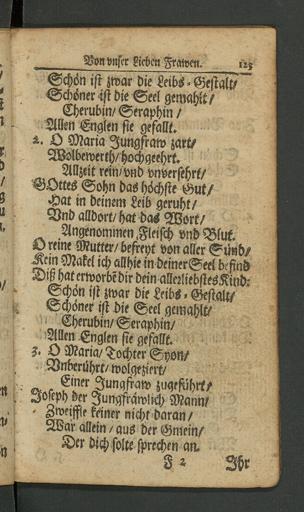 Von vnser Lieben Frawen. 125
Schön ist zwar die Leibs-Gestalt/
Schöner ist die Seel gemahlt/
Cherubin/ Seraphin/
Allen Englen sie gefallt.
2. O Maria Jungfraw zart/
Wolbewerth/ hochgeehrt.
Allzeit rein/ vnd vnversehrt/
GOttes Sohn das höchste Gut/
Hat in deinem Leib geruht/
Vnd alldort/ hat das Wort/
Angenommen Fleisch vnd Blut.
O reine Mutter/ befreyt von aller Sünd/
Kein Makel ich allhie in deiner Seel befind
Diß hat erworbē dir dein allerliebstes Kind:
Schön ist zwar die Leibs-Gestalt/
Schöner ist die Seel gemahlt/
Cherubin/ Seraphin/
Allen Englen sie gefallt.
3. O Maria/ Tochter Syon/
Vnberührt/ wolgeziert/
Einer Jungfraw zugeführt/
Joseph der Jungfräwlich Mann/
Zweiffle keiner nicht daran/
War allein/ aus der Gmein/
Der dich solte sprechen an.
F 2 Ihr